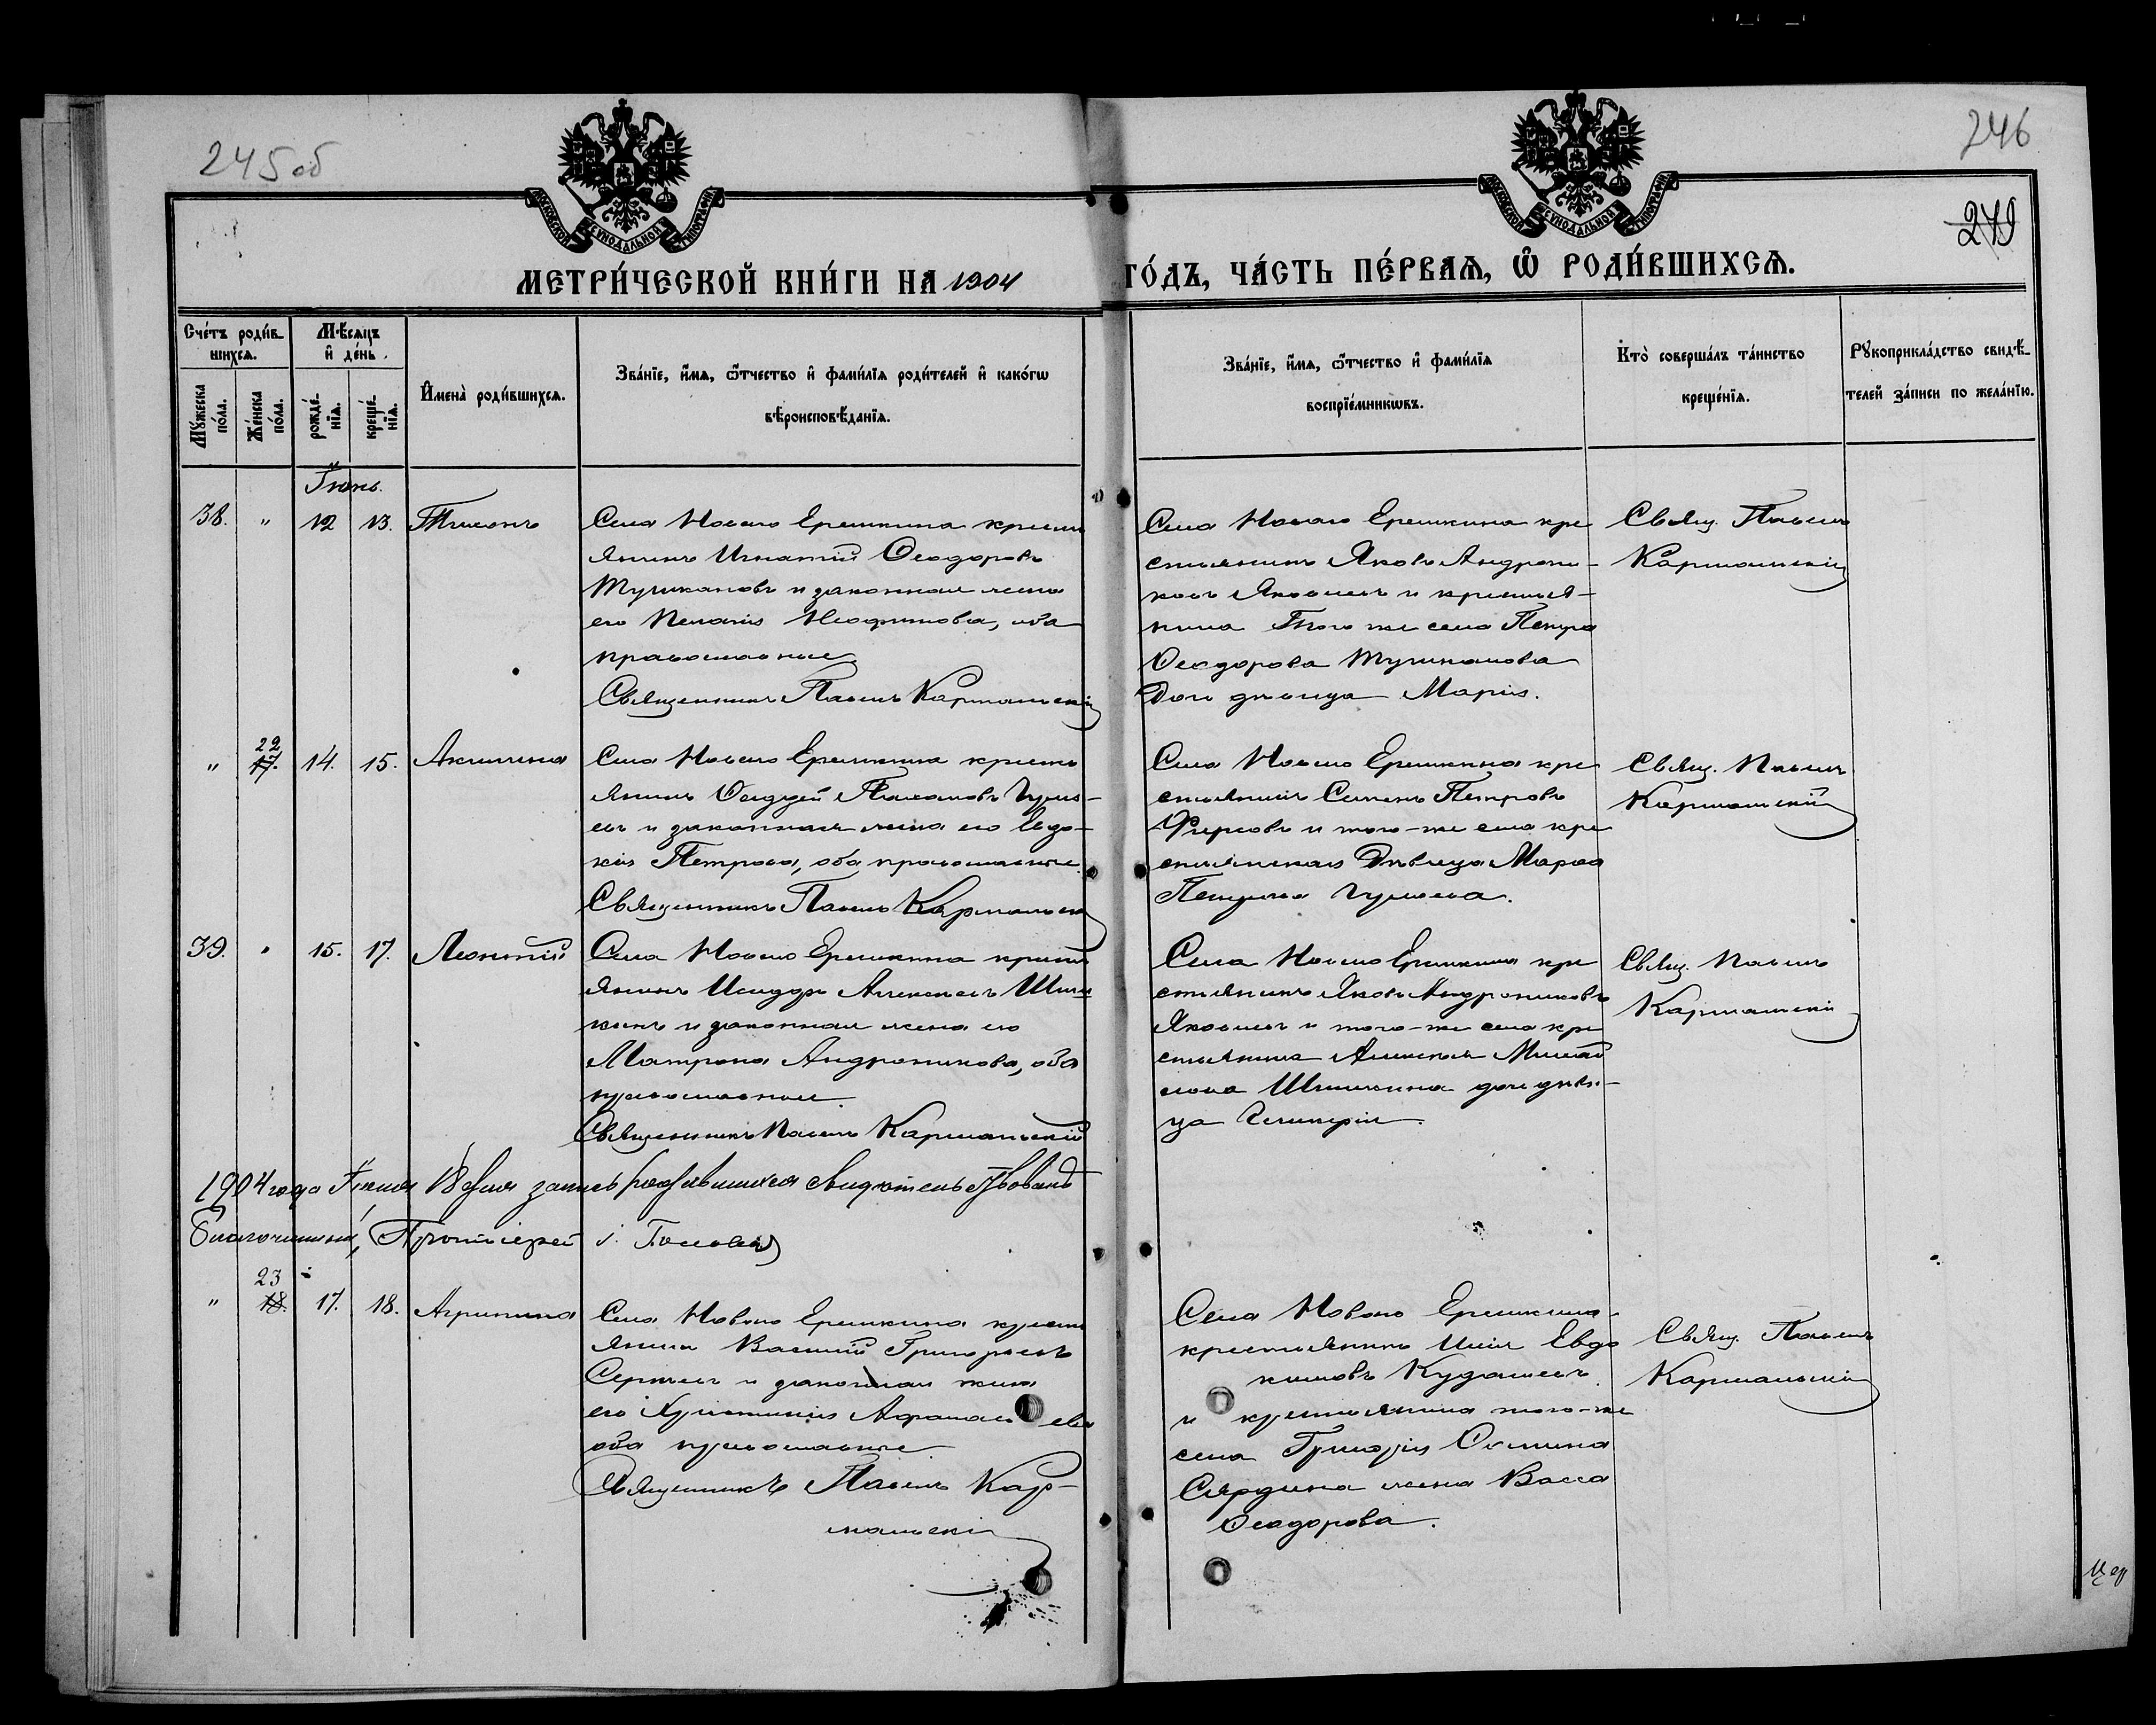 245 об
246
249
МОСКОВСКОЙ СѴНОДАЛЬНОЙ ТИПОГРАФІИ
МОСКОВСКОЙ СѴНОДАЛЬНОЙ ТИПОГРАФІИ
МЕТРИ́ЧЕСКОЙ КНИ́ГИ НА 1904
ГО́ДЪ, ЧА́СТЬ ПЕ́РВАѦ, Ѽ РОДИ́ВШИХСѦ.
Сче́тъ роди́в-
шихсѧ.
Мꙋ́жеска
по́ла.
Же́нска
по́ла.
Мѣ́сѧцъ
и҆ де́нь.
рожде́-
нїѧ.
креще́-
нїѧ.
И҆мена̀ роди́вшихсѧ.
Зва́нїе, и҆́мѧ, ѻ҆́тчество и҆ фами́лїѧ роди́телей и҆ како́гѡ
вѣроисповѣ́данїѧ.
Зва́нїе, и҆́мѧ, ѻ҆́тчество и҆ фами́лїѧ
воспрїе́мникѡвъ.
Кто̀ соверша́лъ та́инство
креще́нїѧ.
Рꙋкоприкла́дство свидѣ́-
телей за́писи по жела́нїю.
Іюнь.
38. " 12 13. Тихонъ
Села Новаго Ерешкина крестья
янинъ Игнатій Ѳеодоровъ
и законная жена
его Пелагія оба
православные
Священникъ Павелъ Кармальскій
Села Новаго Ерешкина кре
стьянинъ Яковъ Андрони-
ковъ Яковлевъ и крестья-
нина того же села Петра
Ѳеодорова
дочь дѣвица Марія.
Свящ. Павелъ
Кармальскій
" 22 17. 14. 15. Акилина
Села Новаго Ерешкина кресть
янинъ
и законная жена его Евдо-
кія Петрова, оба православные.
Священникъ Павелъ Кармальскій
Села Новаго Ерешкина кре
стьянинъ Петровъ
и того-же села кре
стьянская дѣвица
Свящ. Павелъ
Кармальскій
39. " 15. 17. Леонтій
Села Новаго Ерешкина кресть
янинъ Исидоръ Алексѣевъ Шиш
кинъ и законная жена его
Матрона Андроникова, оба
православные.
Священникъ Павелъ Кармальскій
Села Новаго Ерешкина кре
стьянинъ Яковъ Андрониковъ
Яковлевъ и того-же села кре
стьянина Алексѣя Михай
лова Шишкина дочь дѣви-
ца Гликерія.
Свящ. Павелъ
Кармальскій
1904 года Іюня 18 дня запись родившихся свидѣтельствовалъ
Благочинный, Протоіерей
" 23 18. 17. 18. Агрипина
Села Новаго Ерешкина кресть
янинъ Василій Григорьевъ
и законная жена
его Христинія Афанасьева
оба православные
Священникъ Павелъ Кар-
мальскій
Села Новаго Ерешкина
крестьянинъ Илія Евдо
кимовъ Кудашевъ
и крестьянина того-же
села Григорія
жена Васса
Ѳеодорова.
Свящ. Павелъ
Кармальскій